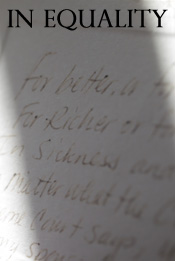 IN EQUALITY
For better, or for
For Richer or
In Sickness and
matter what the
Court Says
my Spouse